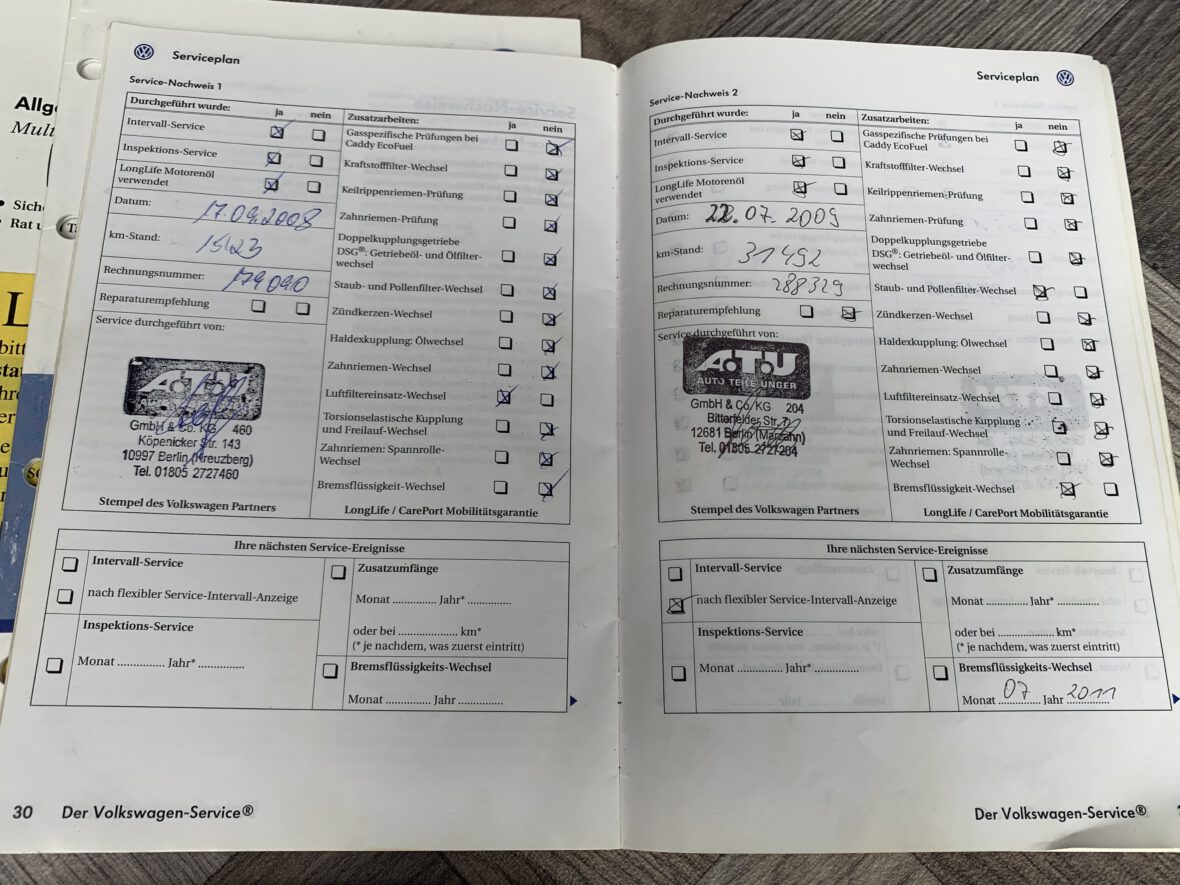 Allg
Mult
• Sich
• Rat u
L
bitt
stat
hre
er
e
u
n
Serviceplan
Service-Nachweis 1
Durchgeführt wurde: ja nein
Intervall-Service
Inspektions-Service
LongLife Motorenöl
verwendet
Datum: 17.09.2008
km-Stand: 15423
Rechnungsnummer: 179090
Reparaturempfehlung
Service durchgeführt von:
A.T.U
GmbH & Co. KG 460
Köpenicker Str. 143
10997 Berlin (Kreuzberg)
Tel. 01805 2727460
Stempel des Volkswagen Partners
Zusatzarbeiten: ja nein
Gasspezifische Prüfungen bei
Caddy EcoFuel
Kraftstofffilter-Wechsel
Keilrippenriemen-Prüfung
Zahnriemen-Prüfung
Doppelkupplungsgetriebe
DSG®: Getriebeöl- und Ölfilter-
wechsel
Staub- und Pollenfilter-Wechsel
Zündkerzen-Wechsel
Haldexkupplung: Ölwechsel
Zahnriemen-Wechsel
Luftfiltereinsatz-Wechsel
Torsionselastische Kupplung
und Freilauf-Wechsel
Zahnriemen: Spannrolle-
Wechsel
Bremsflüssigkeit-Wechsel
LongLife / CarePort Mobilitätsgarantie
Ihre nächsten Service-Ereignisse
Intervall-Service
nach flexibler Service-Intervall-Anzeige
Inspektions-Service
Monat ............... Jahr* ...............
Zusatzumfänge
Monat ............... Jahr* ...............
oder bei .................... km*
(* je nachdem, was zuerst eintritt)
Bremsflüssigkeits-Wechsel
Monat ............... Jahr ...............
30 Der Volkswagen-Service®
Serviceplan
Service-Nachweis 2
Durchgeführt wurde: ja nein
Intervall-Service
Inspektions-Service
LongLife Motorenöl
verwendet
Datum: 22.07.2009
km-Stand: 31492
Rechnungsnummer: 288329
Reparaturempfehlung
Service durchgeführt von:
A.T.U
AUTO TEILE UNGER
GmbH & Co KG 204
Bitterfelder Str.
12681 Berlin (Marzahn)
Tel. 01805 2727204
Stempel des Volkswagen Partners
Zusatzarbeiten: ja nein
Gasspezifische Prüfungen bei
Caddy EcoFuel
Kraftstofffilter-Wechsel
Keilrippenriemen-Prüfung
Zahnriemen-Prüfung
Doppelkupplungsgetriebe
DSG®: Getriebeöl- und Ölfilter-
wechsel
Staub- und Pollenfilter-Wechsel
Zündkerzen-Wechsel
Haldexkupplung: Ölwechsel
Zahnriemen-Wechsel
Luftfiltereinsatz-Wechsel
Torsionselastische Kupplung
und Freilauf-Wechsel
Zahnriemen: Spannrolle-
Wechsel
Bremsflüssigkeit-Wechsel
LongLife / CarePort Mobilitätsgarantie
Ihre nächsten Service-Ereignisse
Intervall-Service
nach flexibler Service-Intervall-Anzeige
Inspektions-Service
Monat ............... Jahr* ...............
Zusatzumfänge
Monat ............... Jahr* ...............
oder bei .................... km*
(* je nachdem, was zuerst eintritt)
Bremsflüssigkeits-Wechsel
Monat 07 Jahr 2011
Der Volkswagen-Service®